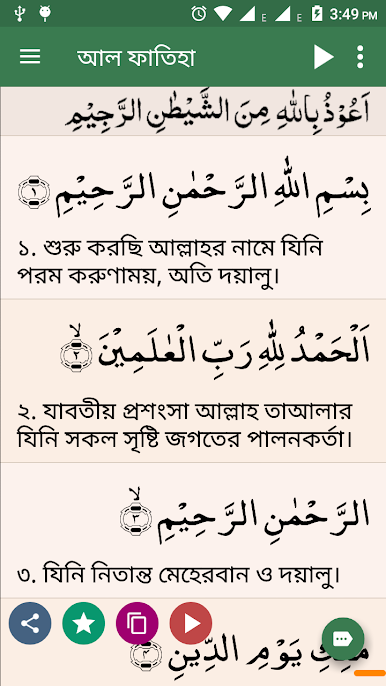 3:49 PM
আল ফাতিহা
اَعُوْذُ بِاللهِ مِنَ الشَّيْطٰنِ الرَّجِيْمِ
بِسْمِ اللهِ الرَّحْمٰنِ الرَّحِيْمِ ۝١
১. শুরু করছি আল্লাহর নামে যিনি
পরম করুণাময়, অতি দয়ালু।
اَلْحَمْدُ لِلّٰهِ رَبِّ الْعٰلَمِيْنَ ۝٢ۙ
২. যাবতীয় প্রশংসা আল্লাহ তাআলার
যিনি সকল সৃষ্টি জগতের পালনকর্তা।
الرَّحْمٰنِ الرَّحِيْمِ ۝٣ۙ
৩. যিনি নিতান্ত মেহেরবান ও দয়ালু।
مٰلِكِ يَوْمِ الدِّيْنِ ۝٤